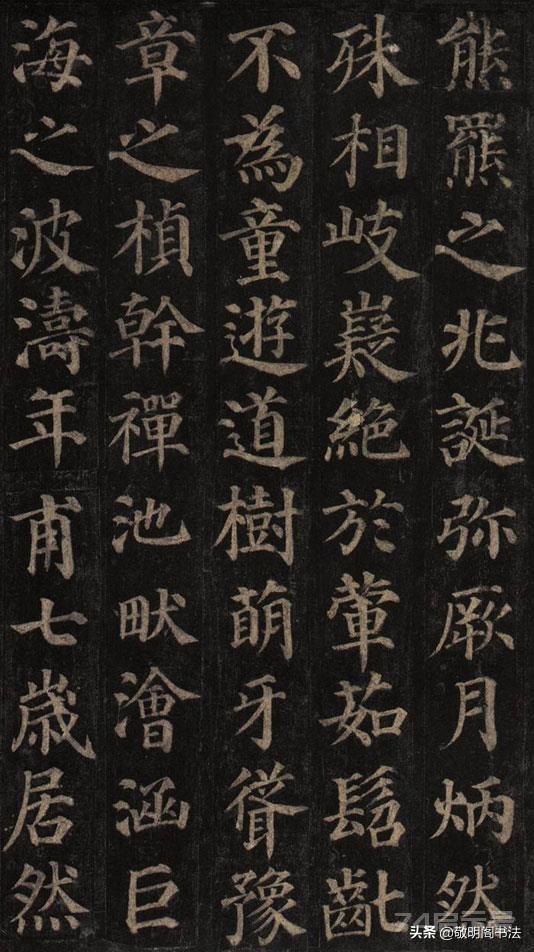 熊羆之兆誕弥厥月炳然
殊相岐嶷絶於葷茹髫齔
不為童遊道樹萌牙聳豫
章之楨幹禪池畎澮涵巨
海之波濤年甫七歲居然
头条 @敬明阁书法